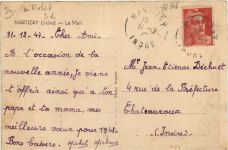 MARTIZAY (Indre) - Le Mail
31-12-47. Cher Ami.
A l'occasion de la
nouvelle année, je viens
t'offrir ainsi qu'à ton
papa et ta mama, mes
meilleurs vœux pour 1948
Bons baisers.
Mr Jean Etienne
4 rue de la Préfecture
Chateauroux
(Indre)
INDRE